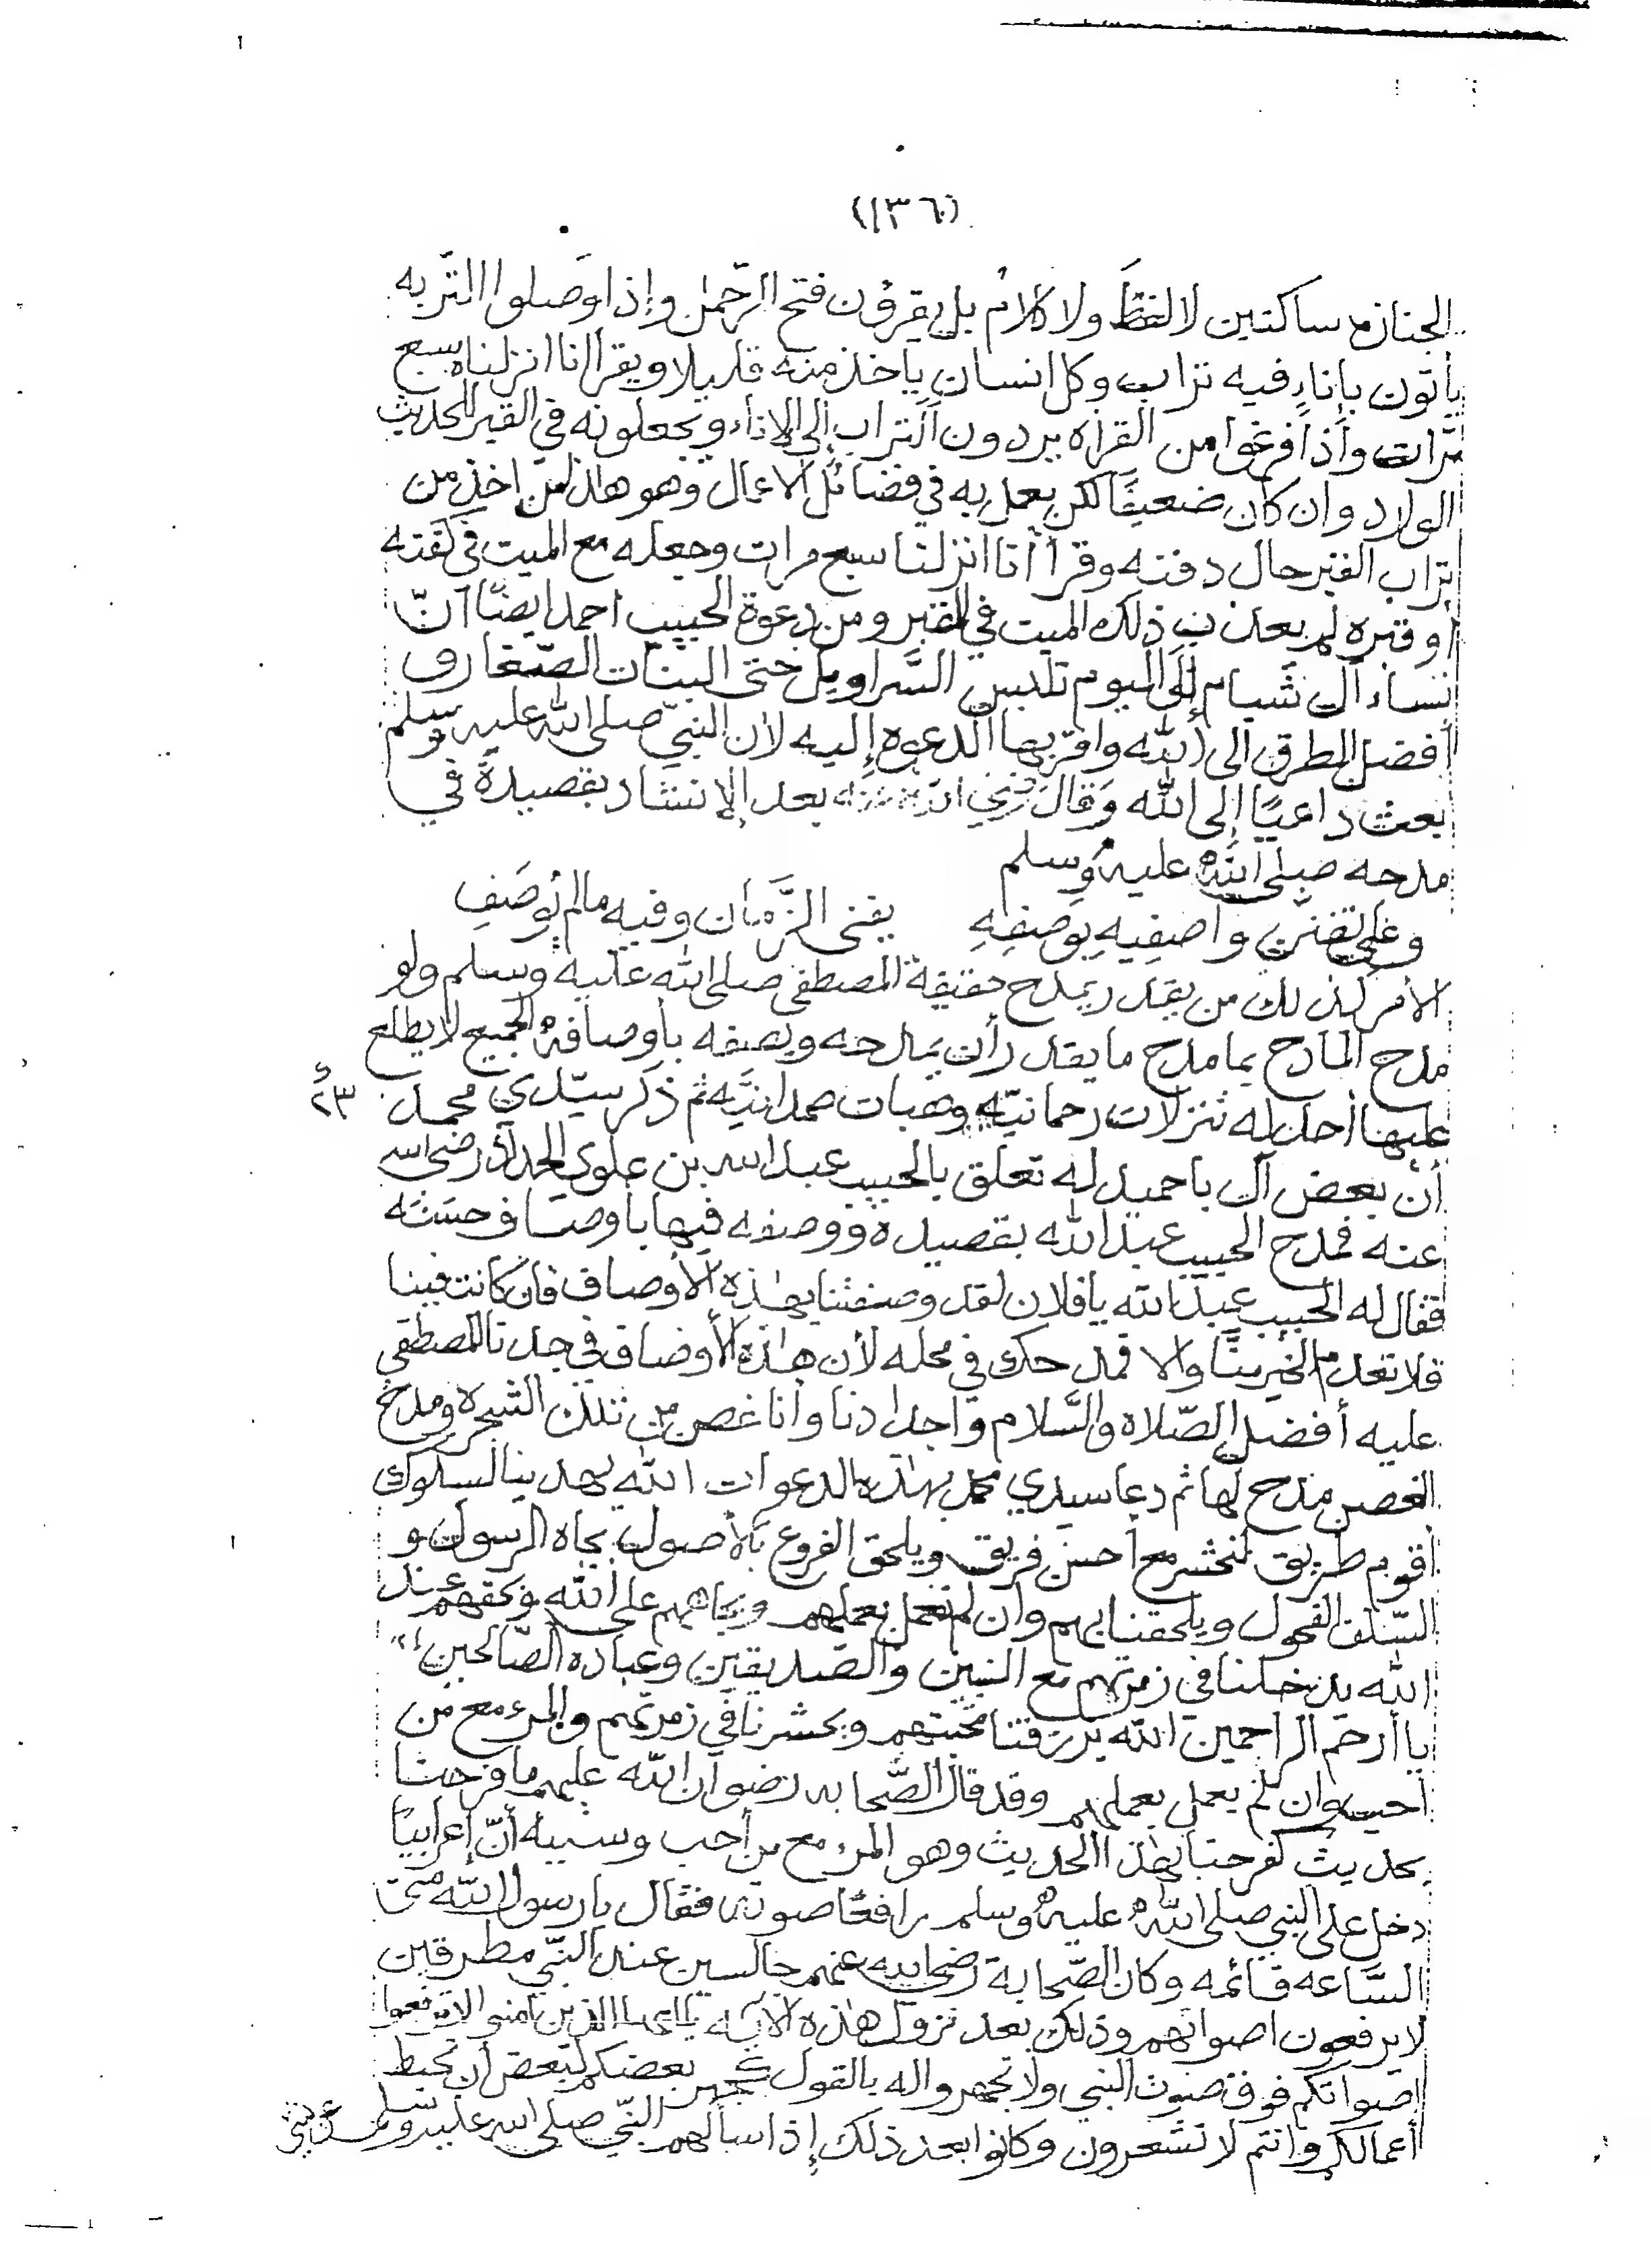 (١٣٦)
الجنازه ساكتين لا لفظ ولا كلام بل يقرؤن فتح الرحمن وإذا وصلوا التربه
يأتون بإناءٍ فيه تراب وكل انسان يأخذ منه قليلا ويقرأ انا انزلناه سبع
مرّات وإذا فرغوا من القراه يردون التراب إلى الاناء ويجعلونه في القبر للحديث
الوارد وان كان ضعيفًا لكن يعمل به في فضائل الاعمال وهو هاذا من اخذ من
تراب القبر حال دفنه وقرأ انا انزلنا سبع مرات وجعله مع الميت في كفنه
أو قبره لم يعذب ذلك الميت في القبر ومن دعوة الحبيب احمد ايضًا انّ
نساء آل شبام إلى اليوم تلبس السَّراويل حتى البنات الصّغار و
أفضل الطرق الى الله واقربها الدعوه إليه لأن النبيّ صلى الله عليه وسلم
بعث داعيًا إلى الله وقال رضي الله عنه بعد الإنشاد بقصيدة في
مدحه صلى الله عليه وسلم
وعلى تفنن واصفيهِ بوصفِهِ يفنى الزَّمان وفيه مالم يُوصَفِ
الأمر كذلك من يقدر يمدح حقيقة المصطفى صلى الله عليه وسلم ولو
مدح المادح بما مدح ما يقدر أن يمدحه ويصفه بأوصافه الجميع لا يطلع
عليها أحد له تنزلات رحمانيّه وهبات صمدانيَّه ثم ذكر سيّدي محمد
أن بعض آل باحميد له تعلق بالحبيب عبد الله بن علوي الحداد رضي الله
عنه فمدح الحبيب عبد الله بقصيده ووصفه فيها بأوصاف حسنه
فقال له الحبيب عبد الله يا فلان لقد وصفتنا بهذه الأوصاف فان كانت فينا
فلا تعدم الخير منّا والا فمدحك في محله لأن هذه الأوصاف في جدنا المصطفى
عليه أفضل الصّلاه والسَّلام واجدادنا وأنا غصن من تلك الشجره ومدح
الغصن مدح لها ثم دعا سيدي محمد بهاذه الدعوات الله يهدينا لسلوك
أقوم طريق لنحشر مع أحسن فريق ويلحق الفروع بالأصول بجاه الرسول و
السّلف الفحول ويلحقنا بهم وان لم نعمل بعملهم وبجاههم على الله وبحقهم عند
الله يدخلنا في زمرتهم مع النبين والصديقين وعباده الصّالحين
يا أرحم الراحمين الله يرزقنا محبتهم ويحشرنا في زمرتهم والمرء مع من
احب وان لم يعمل بعملهم وقد قال الصَّحابه رضوان الله عليهم ما فرحنا
بحديث كفرحنا بهذا الحديث وهو المرء مع من أحب وسببه أنّ إعرابيًا
دخل على النبي صلى الله عليه وسلم رافعًا صوته فقال يا رسول الله متى
السَّاعه قائمه وكان الصّحابة رضي الله عنهم جالسين عند النّبي مطرقين
لا يرفعون اصواتهم وذلك بعد نزول هذه الآيه يا ايها الذين آمنوا لا ترفعوا
اصواتكم فوق صوت النبي ولا تجهروا له بالقول كجهر بعضكم لبعض أن تحبط
أعمالكم وانتم لا تشعرون وكانوا بعد ذلك إذا سألهم النّبي صلى الله عليه وسلم عن شي